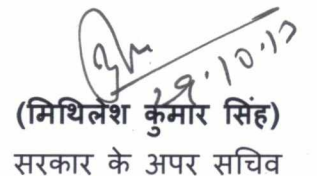 29.10.13
(मिथिलेश कुमार सिंह)
सरकार के अपर सचिव